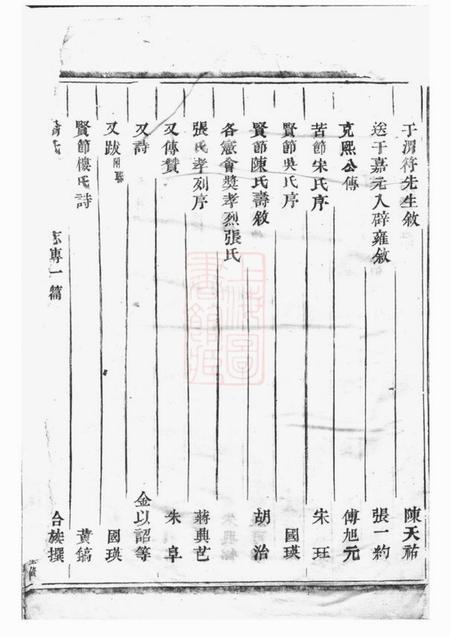 于渭符先生敘 陳天祐
送于嘉元入辟雍敘 張一約
克熙公傳 傅旭元
苦節宋氏序 朱玨
賢節吳氏序 國瑛
賢節陳氏壽敘 胡治
各憲會獎孝烈張氏
張氏孝烈序 蔣典芑
又傳贊 朱阜
又詩 金以詔等
又跋 附聯 國瑛
賢節樓氏詩 黃鎬
氏 志專一篇 合族撰
上海圖書館藏